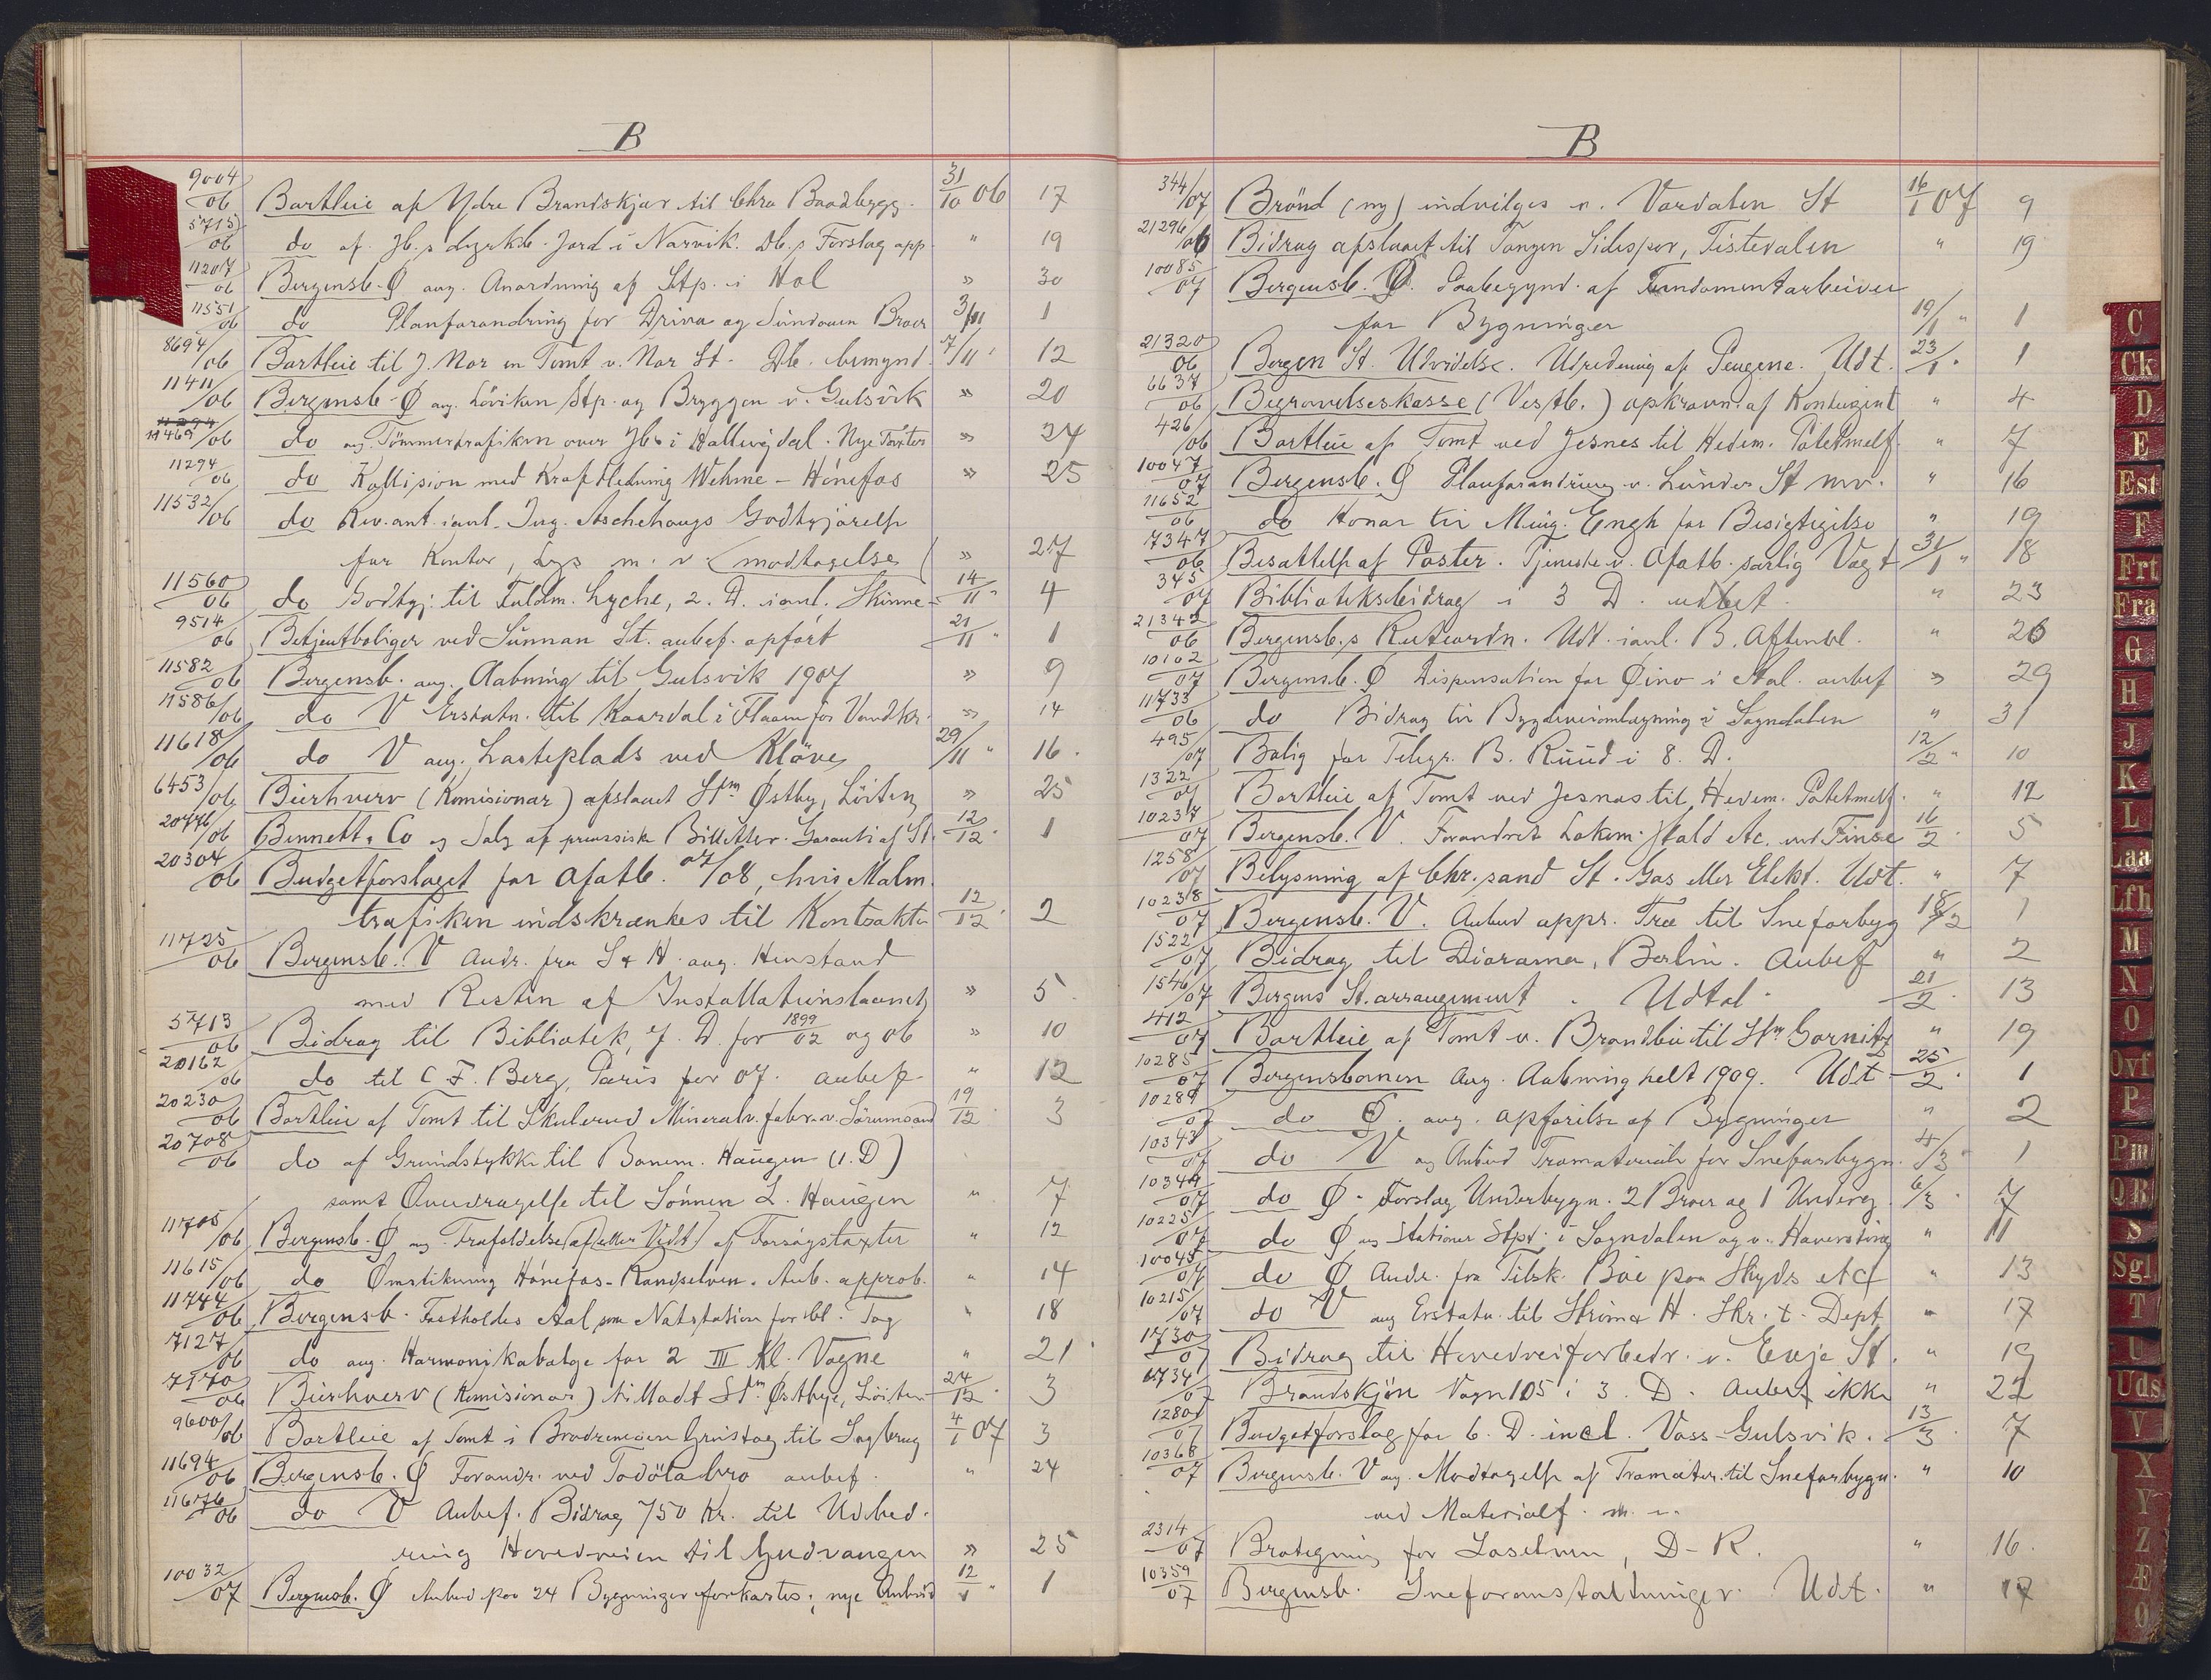 B
9004/06 Bortleie af Ydre Brandskjær til Chra Baadbygg. 31/10 06 17
5715/06 do af Jb.s dyrkb. Jord i Narvik. Db.s Forslag app. " 19
11207/06 Bergensb. Ø ang. Anordning af Stp. i Hol " 30
11551/06 do Planforandring for Driva og Sundøuen Broer 3/11 1
8694/06 Bortleie til J. Nor en Tomt v. Nor St. Db. bemynd. 7/11 " 12
11411/06 Bergensb. Ø ang. Löviken Stp. og Bryggen v. Gulsvik " 20
11469/06 do ang. Tömmertrafiken over Jb. i Hallingdal. Nye Taxter " 24
11294/06 do Kollision med Kraftledning Wehme - Hönefos " 25
11532/06 do Rev. ant. ianl. Ing. Aschehougs Godtgjörelse
for Kontor, Lys m. v. (modtagelse) " 27
11560/06 do Godtgj. til Fuldm. Lyche, 2. D. ianl. Skinne- 14/11 " 4
9514/06 Betjentboliger ved Sunnan St. anbef. opfört 21/11 " 1
11582/06 Bergensb. ang. Aabning til Gulsvik 1907 " 9
11586/06 do V Erstatn. til Kaardal i Flaam for Vandkr. " 14
11618/06 do V ang. Lasteplads ved Klöve 29/11 " 16
6453/06 Bierhverv (Komisionær) afslaaet Stm Østby, Löiten " 25
20776/06 Bennett & Co ang Salg af preussiske Billetter. Garanti af St. 12/12 " 1
20304/06 Budgetforslaget for Ofotb. 07/08, hvis Malm-
trafiken indskrænkes til Kontrakten 12/12 " 2
11725/06 Bergensb. V Andr. fra S & H ang. Henstand
med Resten af Installationslaanet " 5
5713/06 Bidrag til Bibliotek, 7. D. for 1899/02 og 06 " 10
20162/06 do til C F. Berg, Paris for 07. anbef. " 12
20230/06 Bortleie af Tomt til Skulerud Mineralv. fabr. v. Sörumsand 19/12 " 3
20708/06 do af Grundstykke til Banem. Haugen (1. D)
samt Overdragelse til Sönnen L. Haugen " 7
11705/06 Bergensb. Ø ang. Frafaldelse af Forsögstaxter " 12
11615/06 do Omstikning Hönefos-Randselven. Anb. approb. " 14
11744/06 Bergensb. Fastholdes Aal som Natstation for bl. Tog " 18
7127/06 do ang. Harmonikabælge for 2 III Kl. Vogne " 21
7170/06 Bierhverv (Komisionær) tilladt Stm. Østbye, Löiten 24/12 " 3
9600/06 Bortleie af Tomt i Brodremoen Grustag til Sagbrug 4/1 07 3
11694/06 Bergensb. Ø Forandr. ved Todöla bro anbef. " 24
11676/06 do V Anbef. Bidrag 750 Kr. til Udbed-
ring Hovedveien til Gudvangen " 25
10032/07 Bergensb. Ø Anbud paa 24 Bygninger forkastes; nye Anbud 12/1 " 1
B
344/07 Brönd (ny) indvilges v. Værdalen St 16/1 07 9
21296/06 Bidrag afslaaet til Tangen Sidespor, Tistedalen " 19
10085/07 Bergensb. Ø. Paabegynd. af Fundamentarbeider
for Bygninger 19/1 " 1
21320/06 Bergen St. Udvidelse. Udredning af Pengene. Udt. 23/1 " 1
6637/06 Begravelseskasse (Vestb.) opkrævn af Kontingent " 4
426/06 Bortleie af Tomt ved Jesnes til Hedem. Potetmelf. " 7
10047/07 Bergensb. Ø Planforandring v. Lunder St mv. " 16
11652/06 do Honor til Ming. Engh for Besigtigelse " 19
7347/06 Besættelse af Poster. Tjeneste v. Ofotb. særlig Vagt 31/1 " 18
345/07 Biblioteksbidrag i 3 D. udbet. " 23
21342/06 Bergensb.s Ruteordn. Udt. ianl. B. Aftenbl. " 26
10102/07 Bergensb. Ø Dispensation for Øino i Aal. anbef " 29
11733/06 do Bidrag til Bygdeveiomlægning i Sogndalen " 31
495/07 Bolig for Telegr. B. Ruud i 8. D. 12/2 " 10
1322/07 Bortleie af Tomt ved Jesnes til Hedem. Potetmelf. " 12
10237/07 Bergensb. V. Forandret Lokom. stald etc. ved Finse 16/2 " 5
1258/07 Belysning af Chr.sand St. Gas eller Elekt. Udt. " 7
10238/07 Bergensb. V. Anbud appr. Træ til Sneforbyg 18/2 1
1522/07 Bidrag til Diorama, Berlin. Anbef " 2
1546/07 Bergens St. arrangement. Udtal. 21/2 " 13
412/07 Bortleie af Tomt v. Brandbu til Stm Gornitz " 19
10285/07 Bergensbanen Ang. Aabning helt 1909. Udt 25/2 " 1
10289/07 do Ø. ang. opförelse af Bygninger " 2
10343/07 do V ang Anbud Træmateriale for Sneforbygn. 4/3 " 1
10344/07 do Ø. Forslag Underbygn. 2 Broer og 1 Underg. 6/3 " 7
10225/07 do Ø ang Stationer Stpl. i Sogndalen og v. Haversting " 11
10045/07 do Ø Andr. fra Tilsk. Boe paa Skyds etc " 13
10215/07 do V ang Erstatn. til Ström & H. Skr. t. Dept " 17
1730/07 Bidrag til Hovedveiforbedr. v. Evje St. " 19
1734/07 Brandskjön Vogn 105 i 3. D. Anbef ikke " 22
1280/07 Budgetforslag for 6. D. incl. Voss-Gulsvik. 13/3 " 7
10368/07 Bergensb. V ang. Modtagelse af Træmater. til Sneforbygn. " 10
ved Materialf. m. v.
2314/07 Brotegning for Laselven, D-R. " 16
10359/07 Bergensb. Sneforanstaltninger. Udt. " 17
C
Ck
D
E
Est
F
Frt
Fra
G
H
J
K
L
Laa
Lfh
M
N
O
Ovf
P
Pm
QR
S
Sgl
T
U
Uds
V
X
Y
Z
Æ
Ø